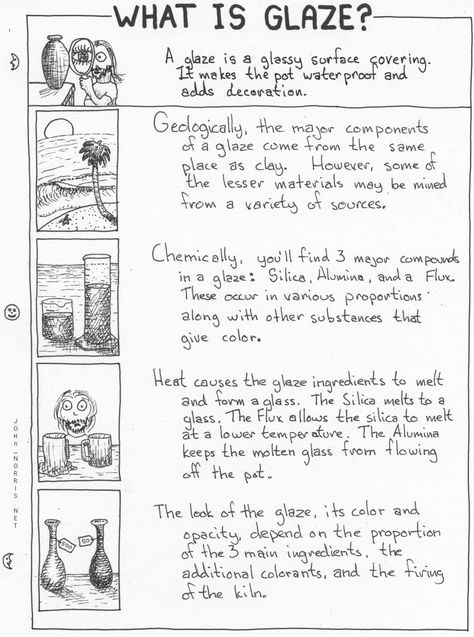 WHAT IS GLAZE?
A glaze is a glassy surface covering.
It makes the pot waterproof and
adds decoration.
Geologically, the major components
of a glaze come from the same
place as clay. However, some of
the lesser materials may be mined
from a variety of sources.
Chemically, you'll find 3 major compounds
in a glaze: Silica, Alumina, and a Flux.
These occur in various proportions
along with other substances that
give color.
Heat causes the glaze ingredients to melt
and form a glass. The Silica melts to a
glass. The Flux allows the silica to melt
at a lower temperature. The Alumina
keeps the molten glass from flowing
off the pot.
The look of the glaze, its color and
opacity, depend on the proportion
of the 3 main ingredients, the
additional colorants, and the firing
of the kiln.
JOHN_NORRIS NET